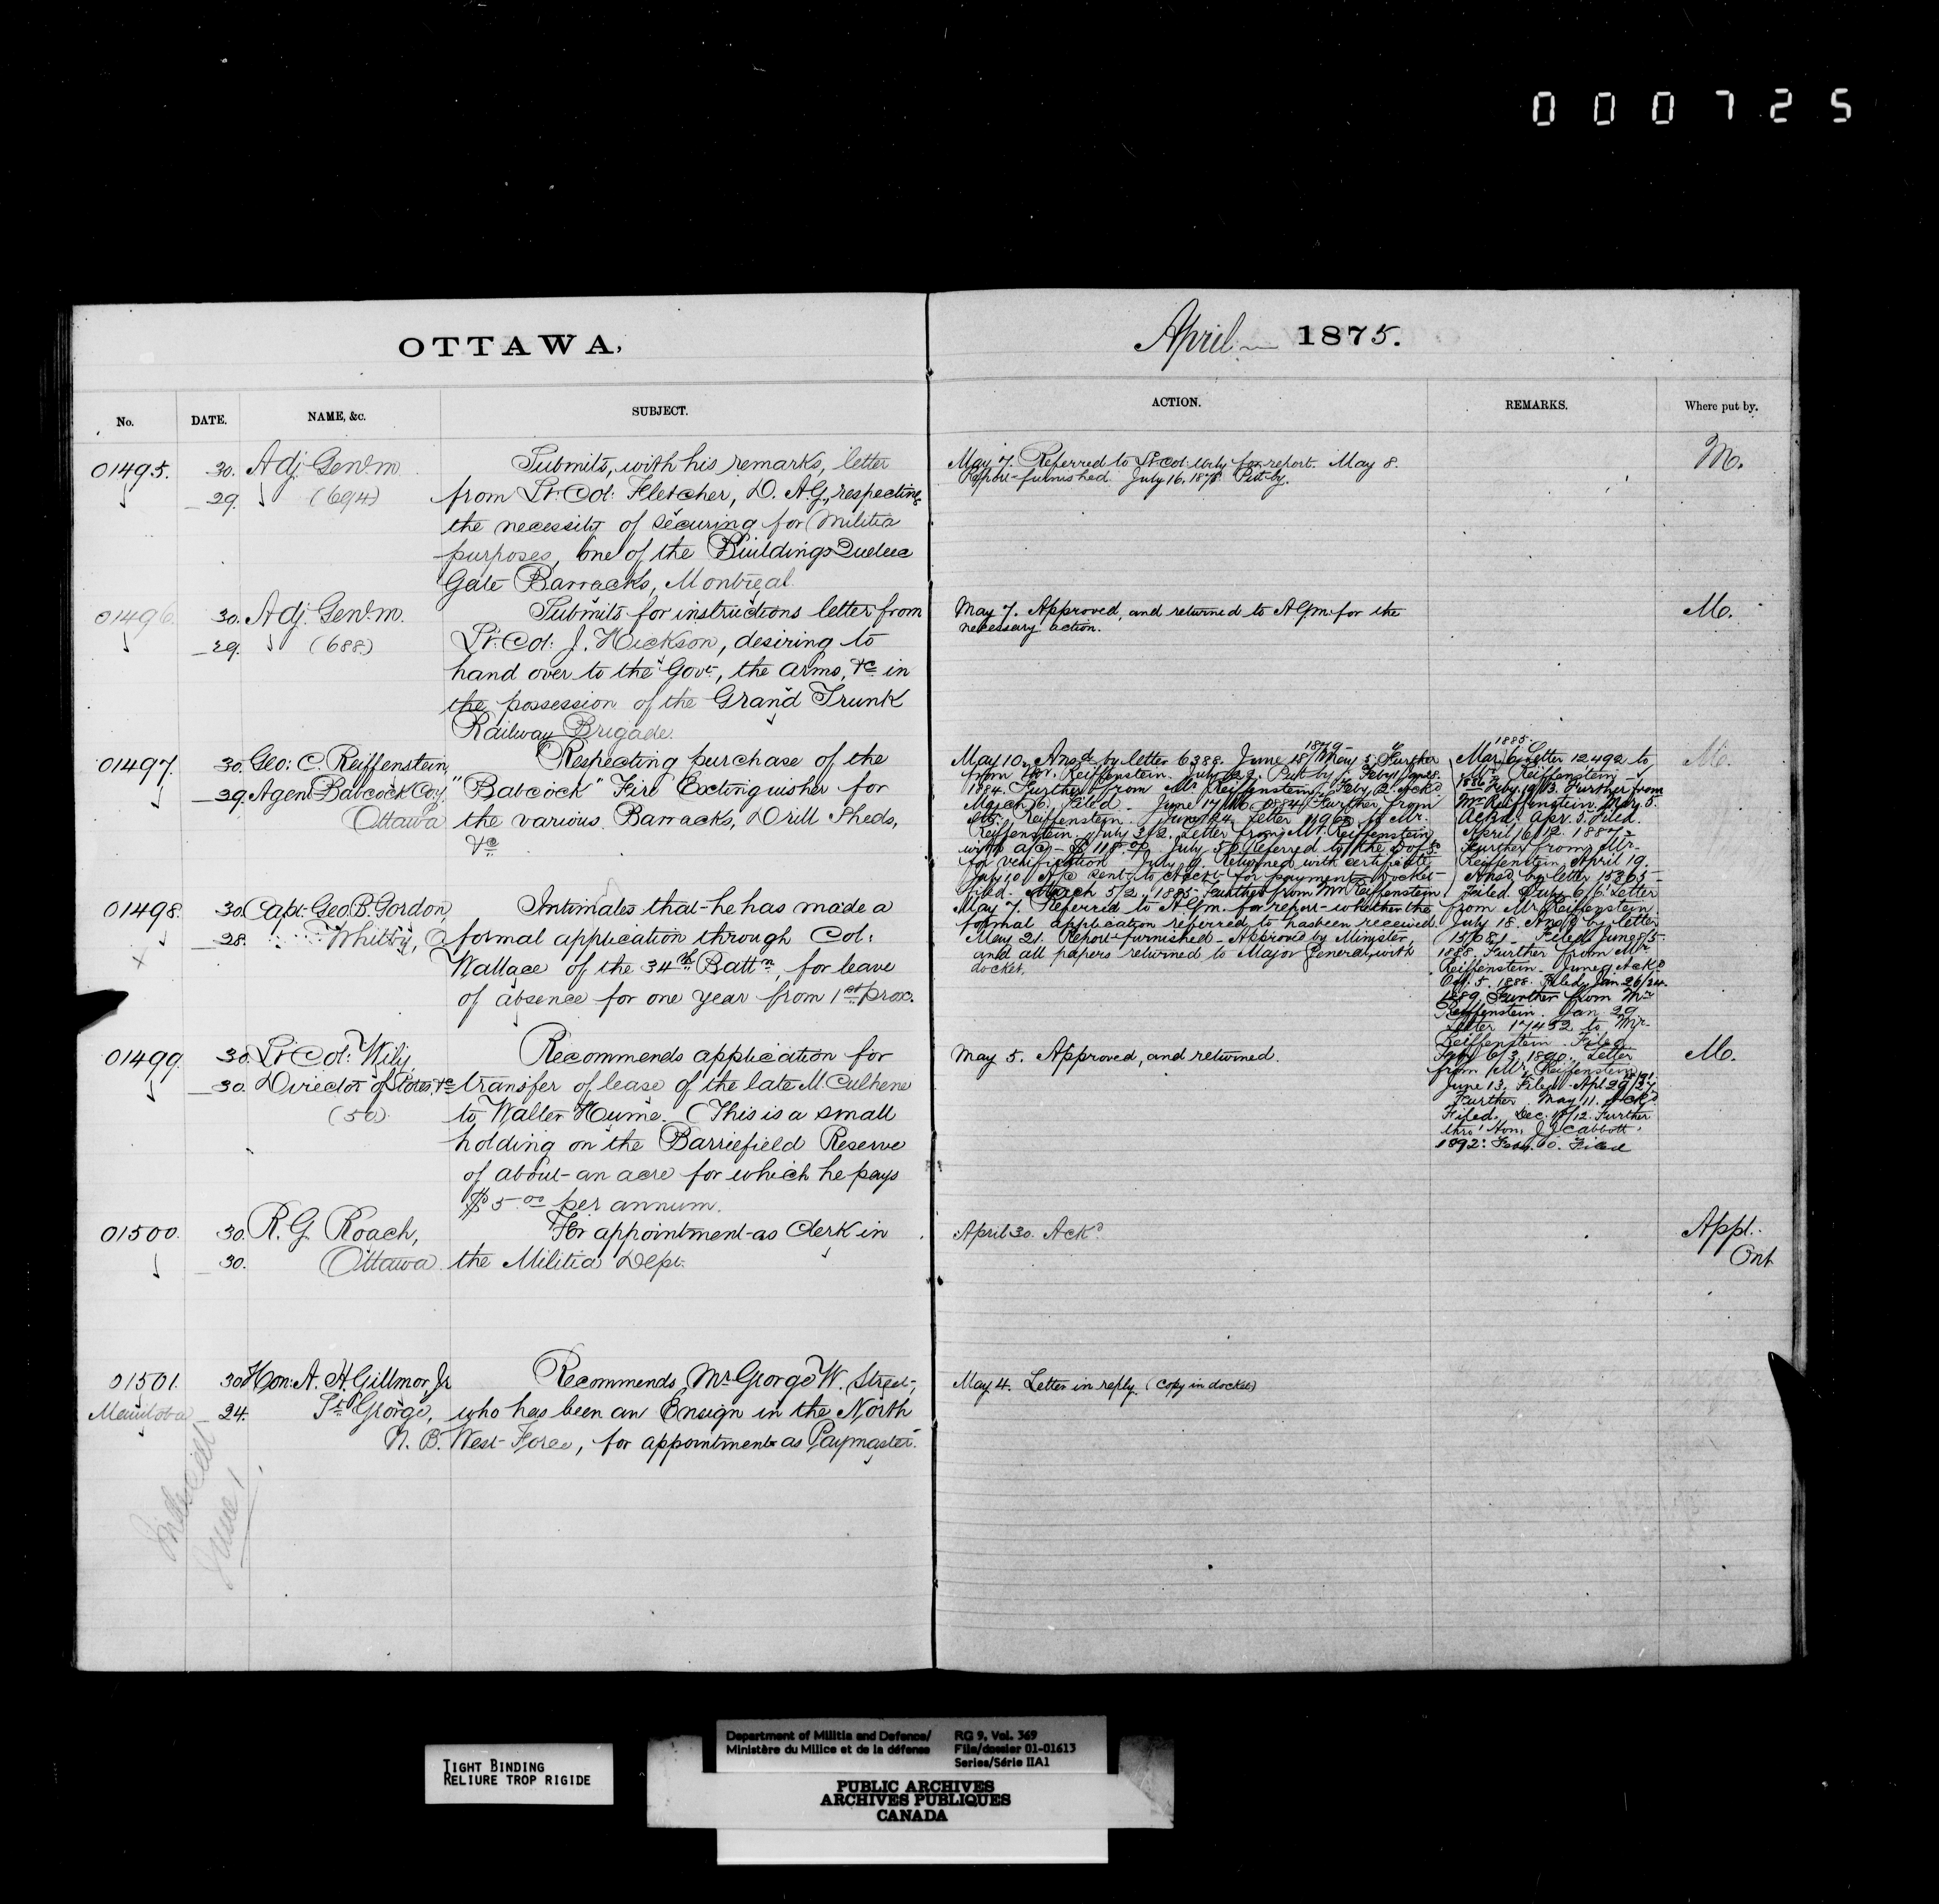 0000725
OTTAWA,
April 1875.
No. DATE. NAME, &c. SUBJECT. ACTION. REMARKS. Where put by.
01495. 30. Adj. Genl. m.
29. (694)
Submits, with his remarks, letter
from Lt: Col: Fletcher, D. A.G., respecting
the necessity of securing for Militia
purposes, one of the Buildings Quebec
Gate Barracks, Montreal
May 7. Referred to Lt Col: Wily for report. May 8.
Report furnished. July 16. 1878. Put by.
M.
01496. 30. Adj. Genl. m.
29. (688)
Submits for instructions letter from
Lt: Col: J. Hickson, desiring to
hand over to the Govt, the arms, &c in
the possession of the Grand Trunk
Railway Brigade.
May 7. Approved, and returned to A G m. for the
necessary action.
M.
01497. 30. Geo: C. Reiffenstein,
29. Agent Babcock Coy.
Ottawa
Respecting purchase of the
"Babcock" Fire Extinguisher for
the various Barracks, Drill Sheds,
&c
May 10. Ansd by letter 6388. June 15/ 1879 May 5. Further
from Mr. Reiffenstein. July Put by
1884. Further from Mr. Reiffenstein. Feby 2. Ackd
March 6. Filed. June 17/16 1884. Further from
Mr. Reiffenstein. June 24. Letter to Mr.
Reiffenstein. July 3/2. Letter from Mr. Reiffenstein
with a/c - $118. July 5. Referred to the D of S
for verification. July 9. Returned with certificate
July 10. A/c sent to Acct. for payment. Docket
filed. March 5/2. 1885. Further from Mr Reiffenstein
1885.
Mar. 6. Letter 12492 to
Mr. Reiffenstein
1886 Feby. Further from
Mr. Reiffenstein. Mar. 5.
Ackd. Apr. 5. Filed.
April 16/12. 1887.
Further from Mr.
Reiffenstein. April 19.
Ansd. by letter 15365
Filed. July 6/6 Letter
from Mr. Reiffenstein
July 18. Ansd by letter
15681. Filed. June 8/5.
1888. Further from Mr
Reiffenstein. June 9. Ackd
Oct. 5. 1888. Filed. Jan. 26/24.
1889. Further from Mr
Reiffenstein. Jan. 29
Letter 17452 to Mr.
Reiffenstein. Filed
6/3. 1890. Letter
from Mr. Reiffenstein
June 13. Filed. Apl 29/27
Further. May 11. Ackd
Filed. Dec. Further
thro' Hon. J J C Abbott.
1892. Filed
M.
01498. 30. Capt. Geo. B. Gordon,
28. Whitby, O
Intimates that he has made a
formal application through Col:
Wallace of the 34th Battn, for leave
of absence for one year from 1st prox.
May 7. Referred to A G m. for report whether the
formal application referred to has been received.
May 21. Report furnished. Approved by Minister,
and all papers returned to Major General, with
docket.
01499. 30. Lt Col: Wily,
30. Director of Stores, &c
(50)
Recommends application for
transfer of lease of the late McCulhene
to Walter Hume. (This is a small
holding on the Barriefield Reserve
of about an acre for which he pays
$5.00 per annum.
May 5. Approved, and returned.
M.
01500. 30. R. G. Roach,
30. Ottawa
For appointment as Clerk in
the Militia Dept.
April 30. Ackd
Appl.
Ont
01501. 30 Hon: A. H. Gillmor, Jr
Manitoba 24. St George,
N. B.
Recommends Mr George W. Street,
who has been an Ensign in the North
West Force, for appointment as Paymaster.
May 4. Letter in reply. (Copy in docket)
June 1.
TIGHT BINDING
RELIURE TROP RIGIDE
Department of Militia and Defence/
Ministère du Milice et de la défense
RG 9, Vol. 369
File/dossier 01-01613
Series/Série IIA1
PUBLIC ARCHIVES
ARCHIVES PUBLIQUES
CANADA